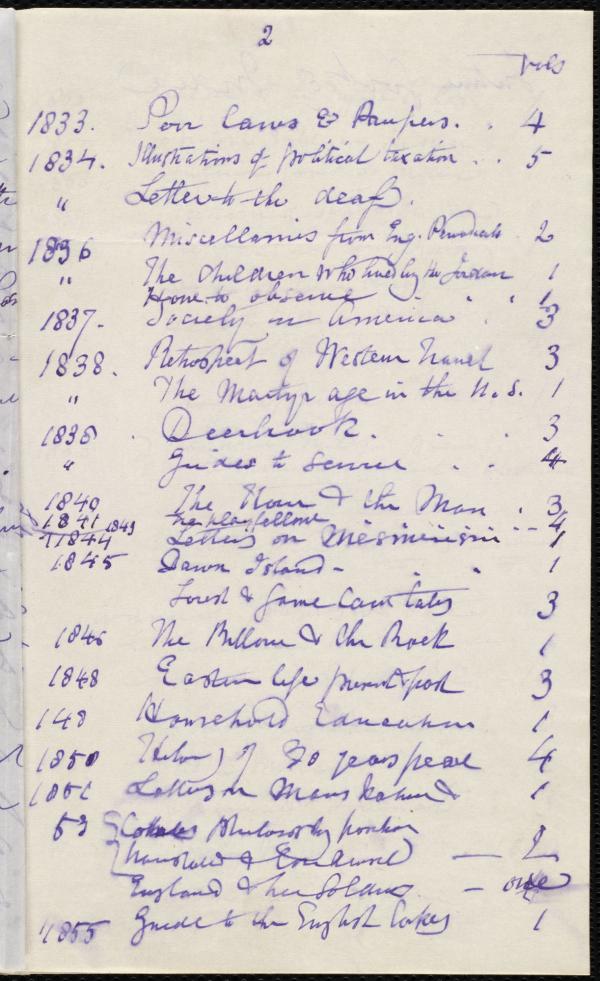 2
vols
1833. Poor Laws & Paupers. . 4
1834. Illustrations of political taxation . . 5
" Letter to the deaf.
1836 Miscellanies from Eng. 2
" The Children who lived by the Jordan 1
How to observe . . . 1
1837. Society in America . 3
1838. Retrospect of Western Travel 3
" The Martyr age in the U.S. 1
183 . Deerbrook. . . 3
" Guides to Service . . 4
1840 The Hour & the Man . 3
1841 1843 The playfellow -- 4
1844 Letters on Mesmerism 1
1845 Dawn Island - . . 1
Forest & Game Law tales 3
1846 The Billow & the Rock 1
1848 Eastern life present & past 3
148 Household Education 1
1850 History of 30 years peace 4
1851 Letters on Mans Nature & 1
53 Philosophy
translated & Condensed — 2
England & her Soldiers — one
1855 Guide to the English Lakes 1